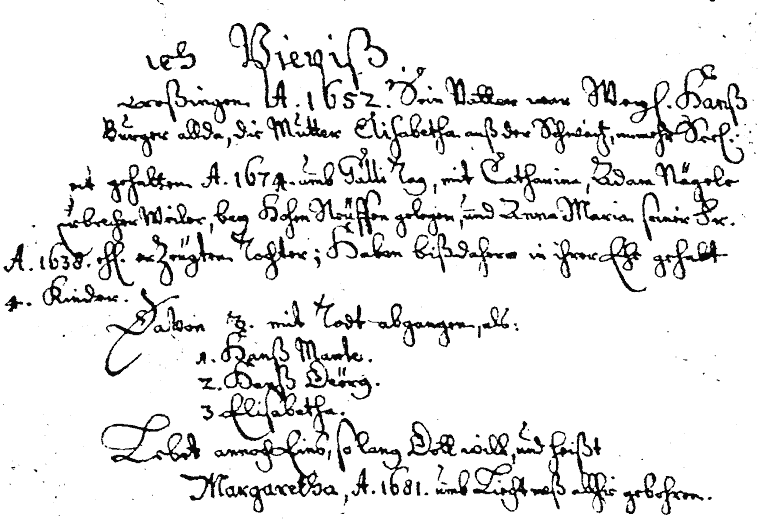 ich Vieriß
Großingen A. 1652. Sein Vatter war Weyl. Hanß
Burger allda, die Mutter Elisabetha auß der Schweitz, nunmehr Seel.
zeit gehalten A. 1674. umb Galli Tag, mit Catharina, Adam Nägele
Erbacher Weiler, bey Hohen Neüffen gelegen, und Anna Maria seiner Fr.
A. 1638. ehl. erzeügten Tochter; Haben bißdahero in ihrer Ehe gehabt
4. Kinder.
Davon 3. mit Todt abgangen, als:
1. Hanß
2. Hanß Geörg.
3 Elisabetha.
Lebet annoch Eins, so lang Gott will, und heißt
Margaretha, A. 1681. umb Liechtmeß allhie gebohren.